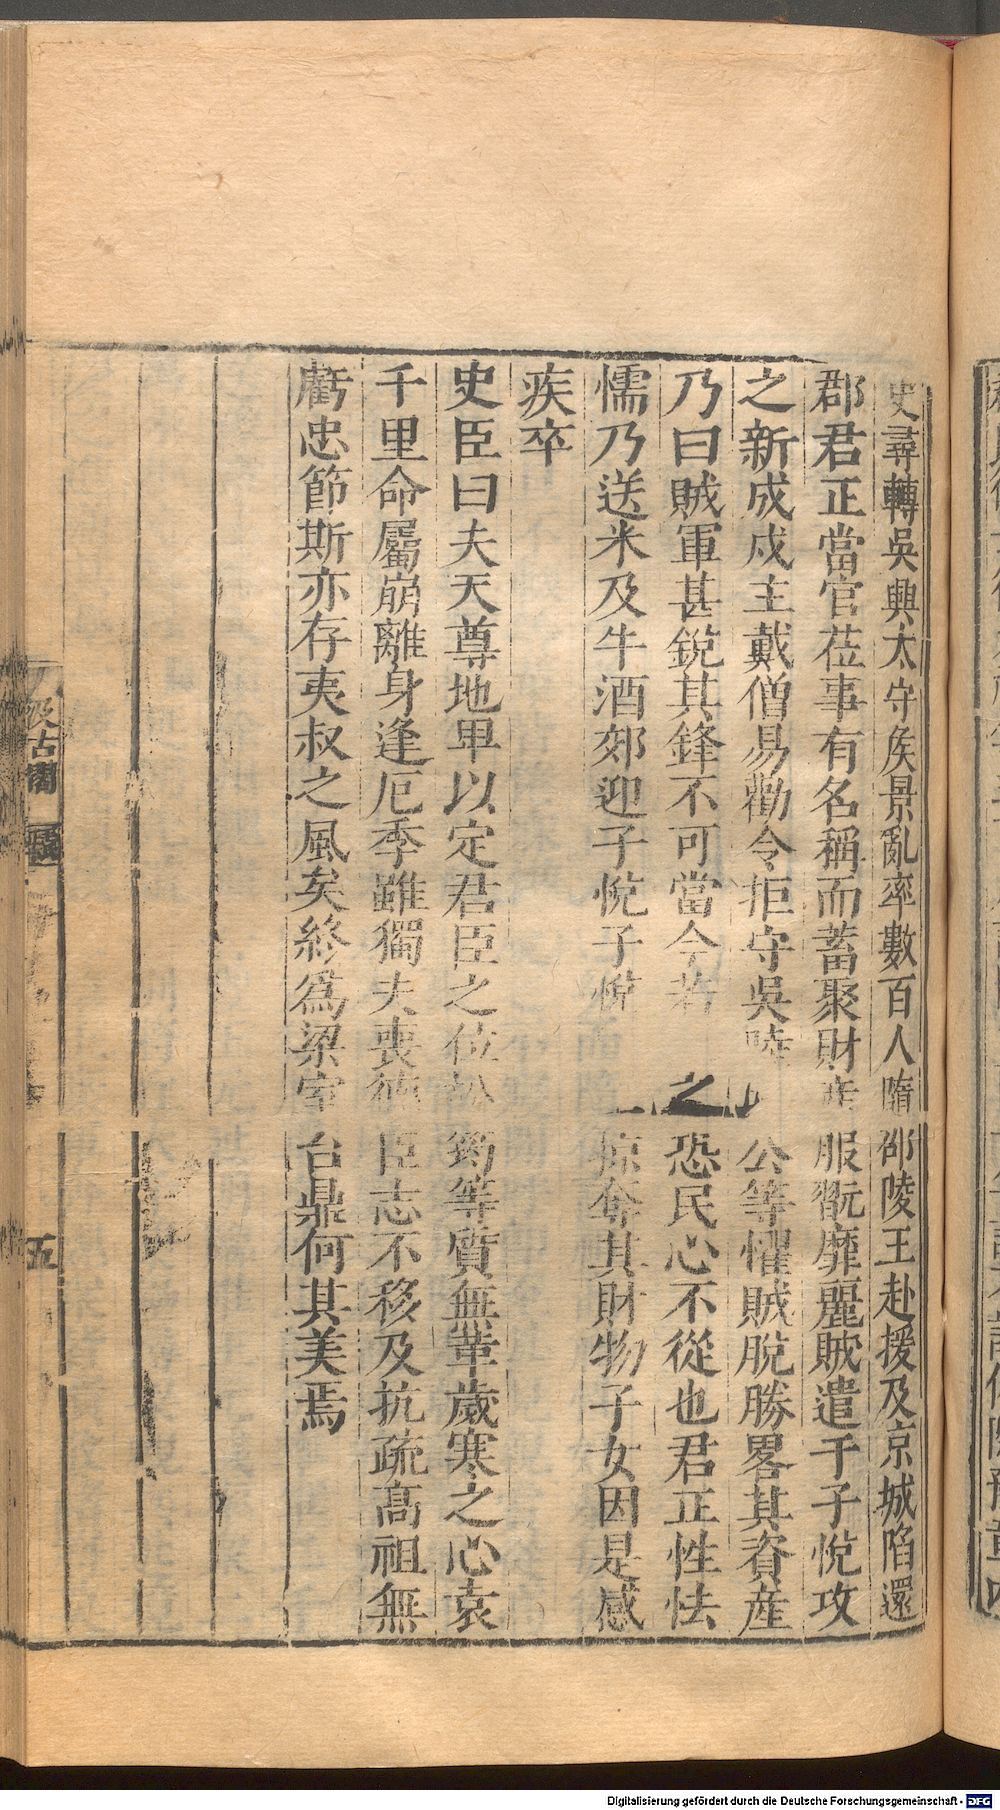 史尋轉吳興太守矦景亂率數百人隨邵陵王赴援及京城陷還
郡君正當官莅事有名稱而蓄聚財産服翫靡麗賊遣于子悅攻
之新成戍主戴僧易勸令拒守吳陸 公等懼賊脫勝畧其資産
乃曰賊軍甚銳其鋒不可當今若 之恐民心不從也君正性怯
懦乃送米及牛酒郊迎子悅子悅 掠奪其財物子女因是感
疾卒
史臣曰夫天尊地卑以定君臣之位松筠等質無革歲寒之心袁
千里命屬崩離身逢厄季雖獨夫喪德臣志不移及抗疏高祖無
虧忠節斯亦存夷叔之風矣終爲梁室台鼎何其美焉
汲古閣
五
Digitalisierung gefördert durch die Deutsche Forschungsgemeinschaft - DFG